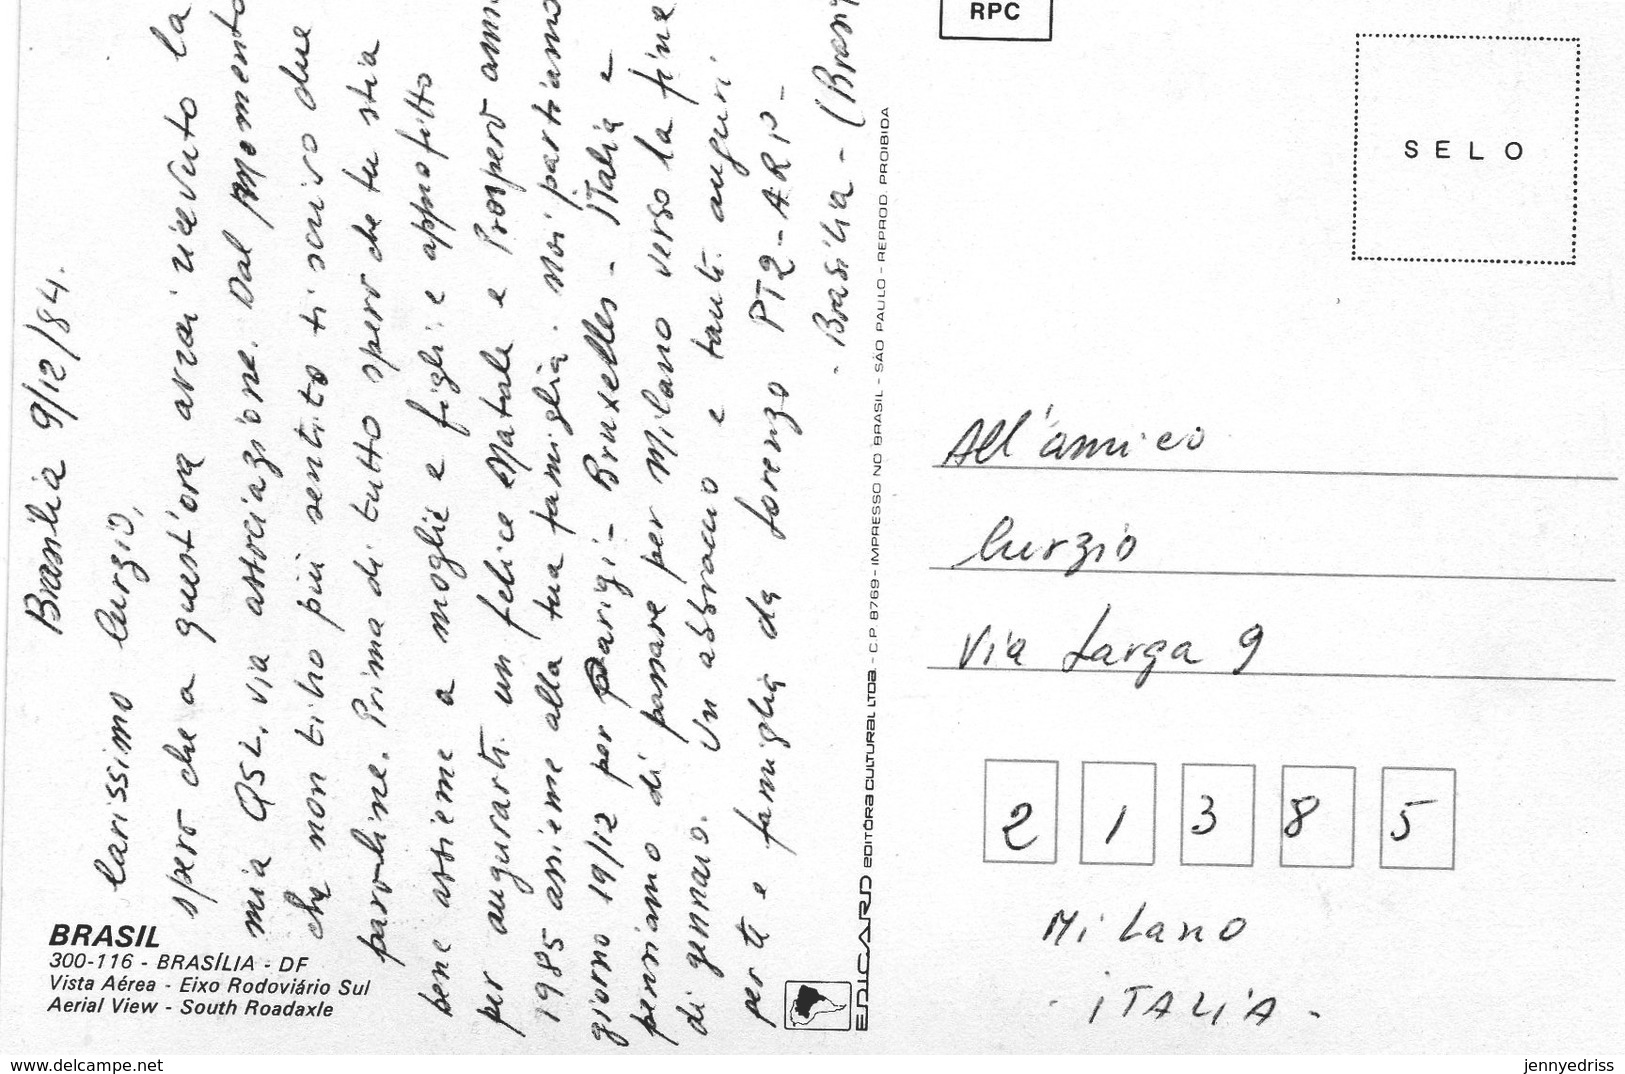 Brasilia 9/12/84.
Carissimo Curzio,
spero che a quest'ora avrai ricevuto la
mia QSL, via associazione. Dal momento
che non ti ho più sentito ti scrivo due
paroline. Prima di tutto spero che tu stia
bene assieme a moglie e figli e approfitto
per augurarti un felice Natale e Prospero
1985 assieme alla tua famiglia. Noi partiamo
giorno 19/12 per Parigi - Bruxelles - Italia e
pensiamo di passare per Milano verso la fine
di gennaio. Un abbraccio e tanti auguri
per te e famiglia da Lorenzo PT2-ARP -
- Brasilia - (Bras
BRASIL
300-116 - BRASÍLIA - DF
Vista Aérea - Eixo Rodoviário Sul
Aerial View - South Roadaxle
EDICARD EDITÔRA CULTURAL LTDA. - C.P. 8769 - IMPRESSO NO BRASIL - SÃO PAULO - REPROD. PROIBIDA
RPC
SELO
All'amico
Curzio
Via Larga 9
2 1 3 8 5
Milano
- ITALIA -
www.delcampe.net
jennyedriss